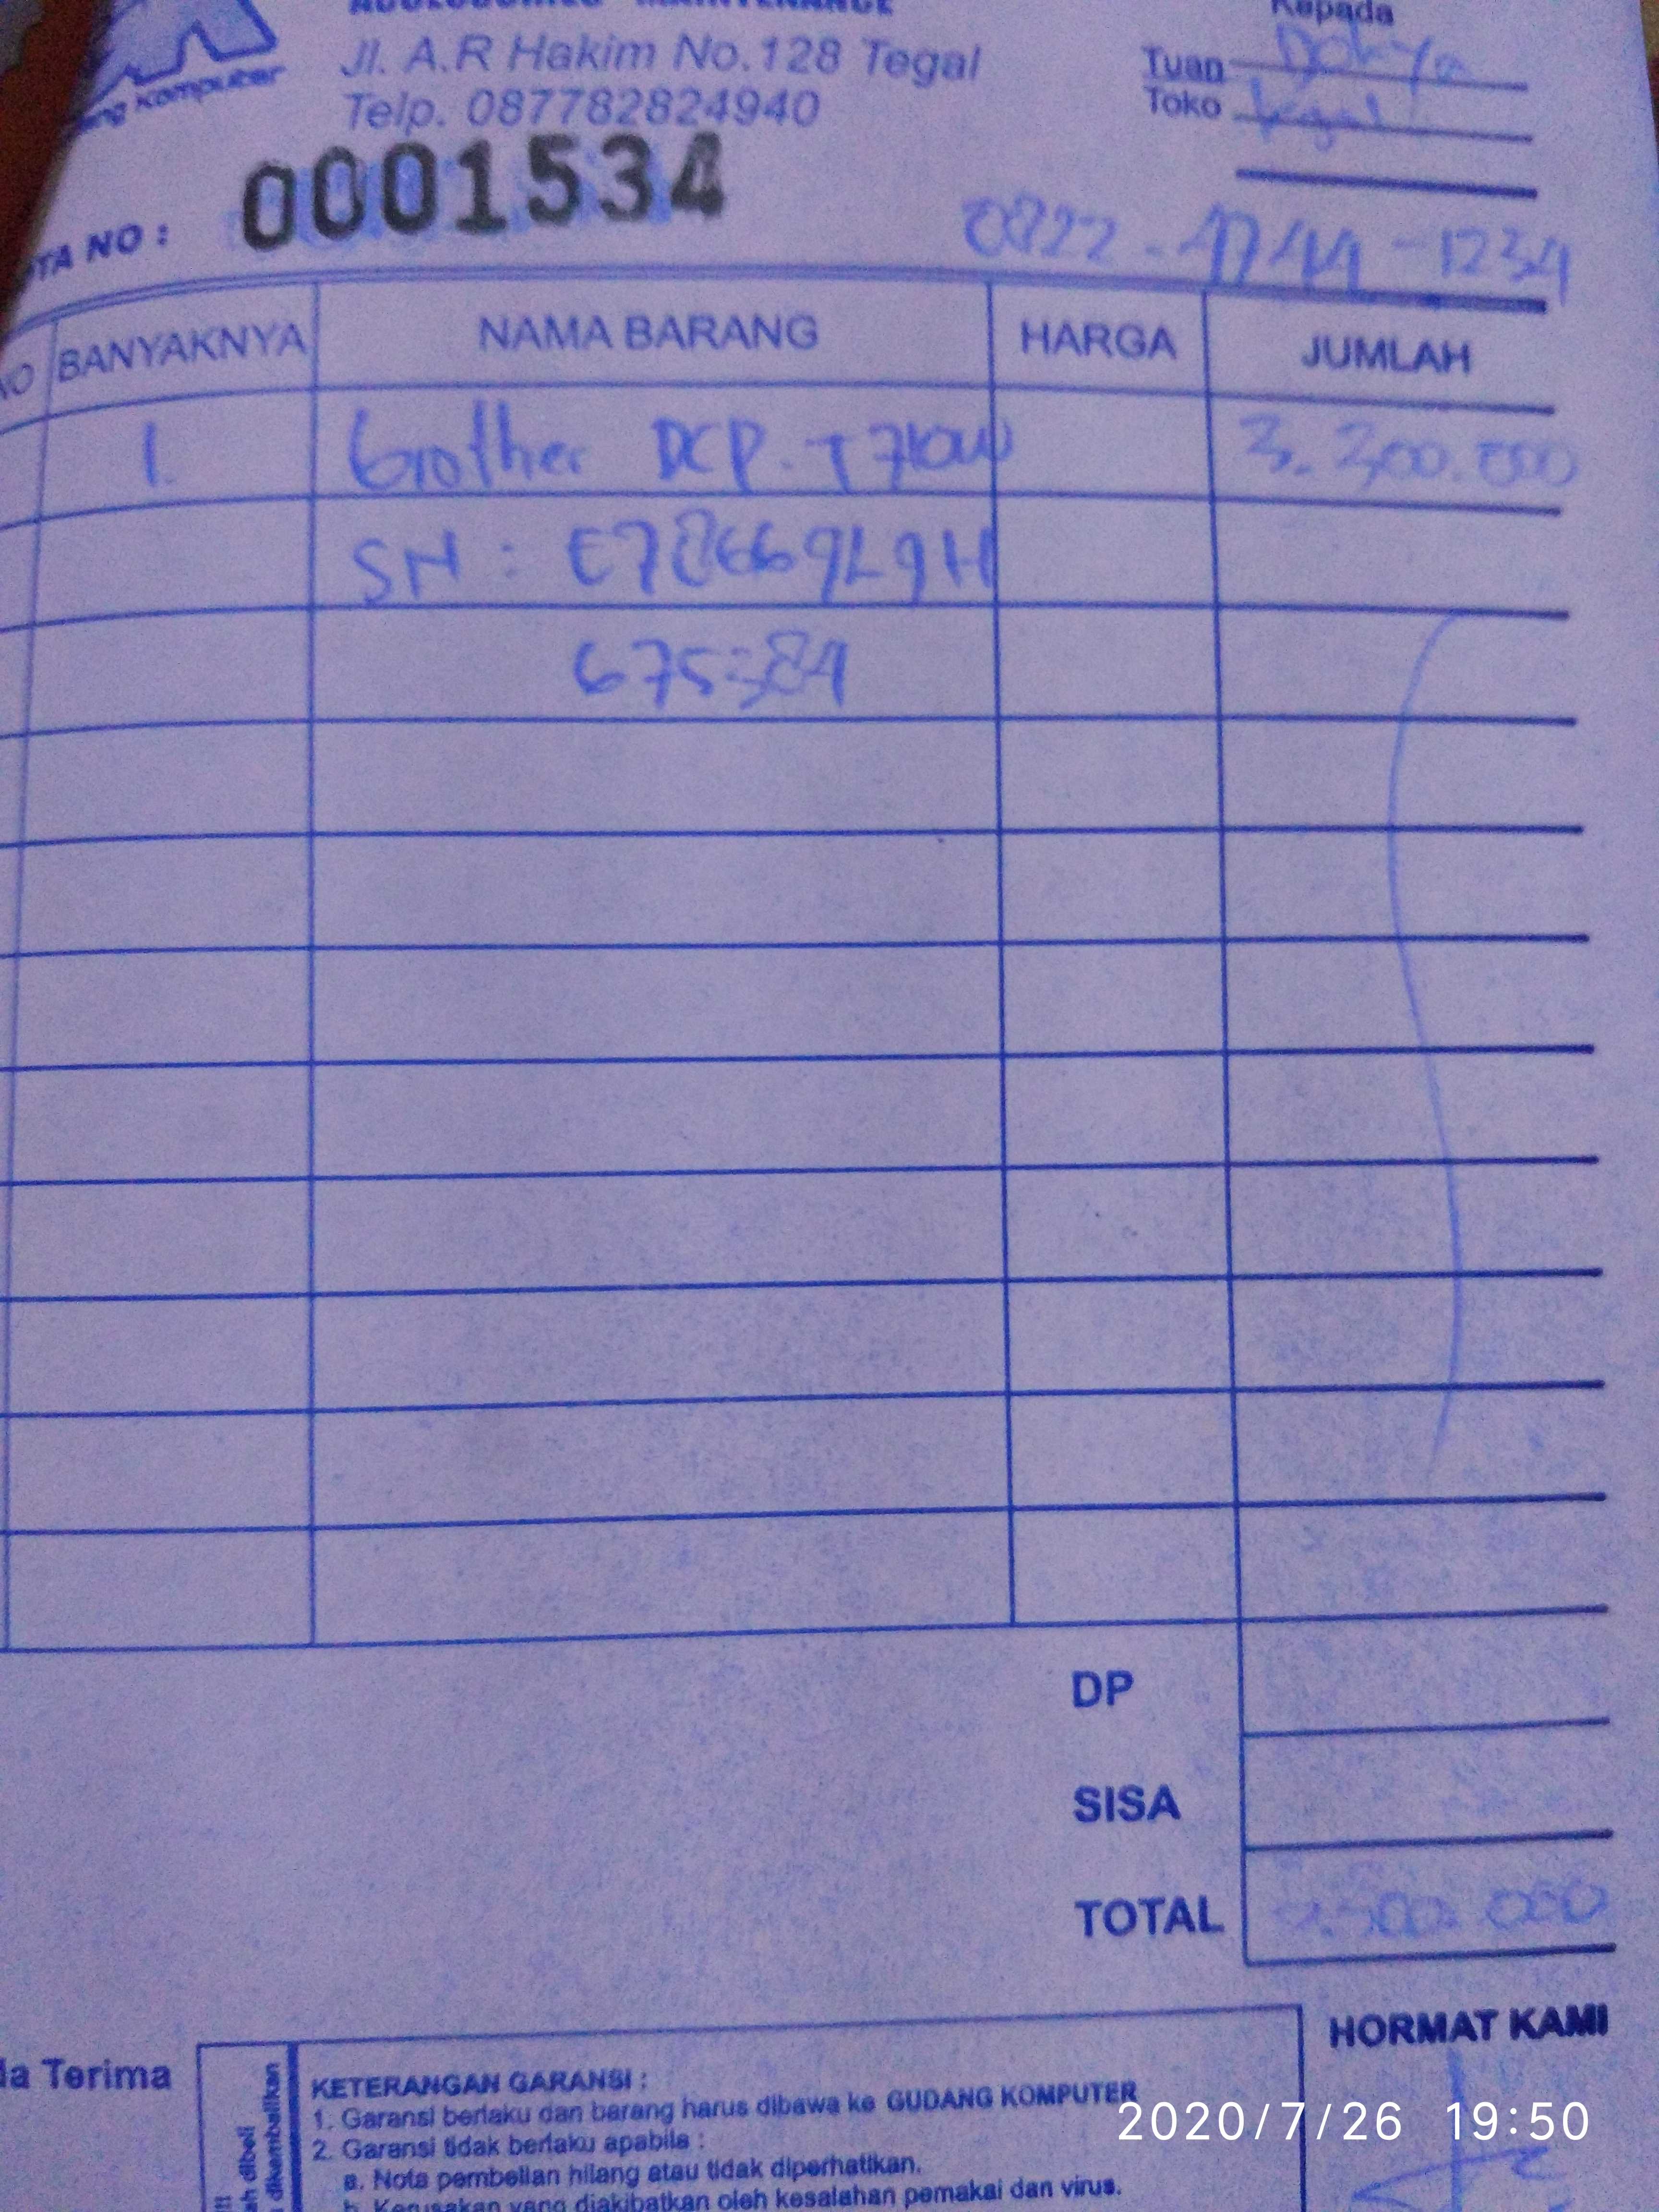 Kepada
Jl. A.R Hakim No.128 Tegal
Telp. 087782824940
Tuan
Toko Tegal
Komputer
NOTA NO : 0001534
0822 - 4744 - 1234
NO BANYAKNYA NAMA BARANG HARGA JUMLAH
1. brother DCP-T710W 3.300.000
SN : E78669L9H
675384
DP
SISA
TOTAL 3.300.000
HORMAT KAMI
da Terima
KETERANGAN GARANSI :
1. Garansi berlaku dan barang harus dibawa ke GUDANG KOMPUTER
2. Garansi tidak berlaku apabila :
a. Nota pembelian hilang atau tidak diperhatikan.
b. Kerusakan yang diakibatkan oleh kesalahan pemakai dan virus.
ah dibeli
dikembalikan
2020/7/26 19:50